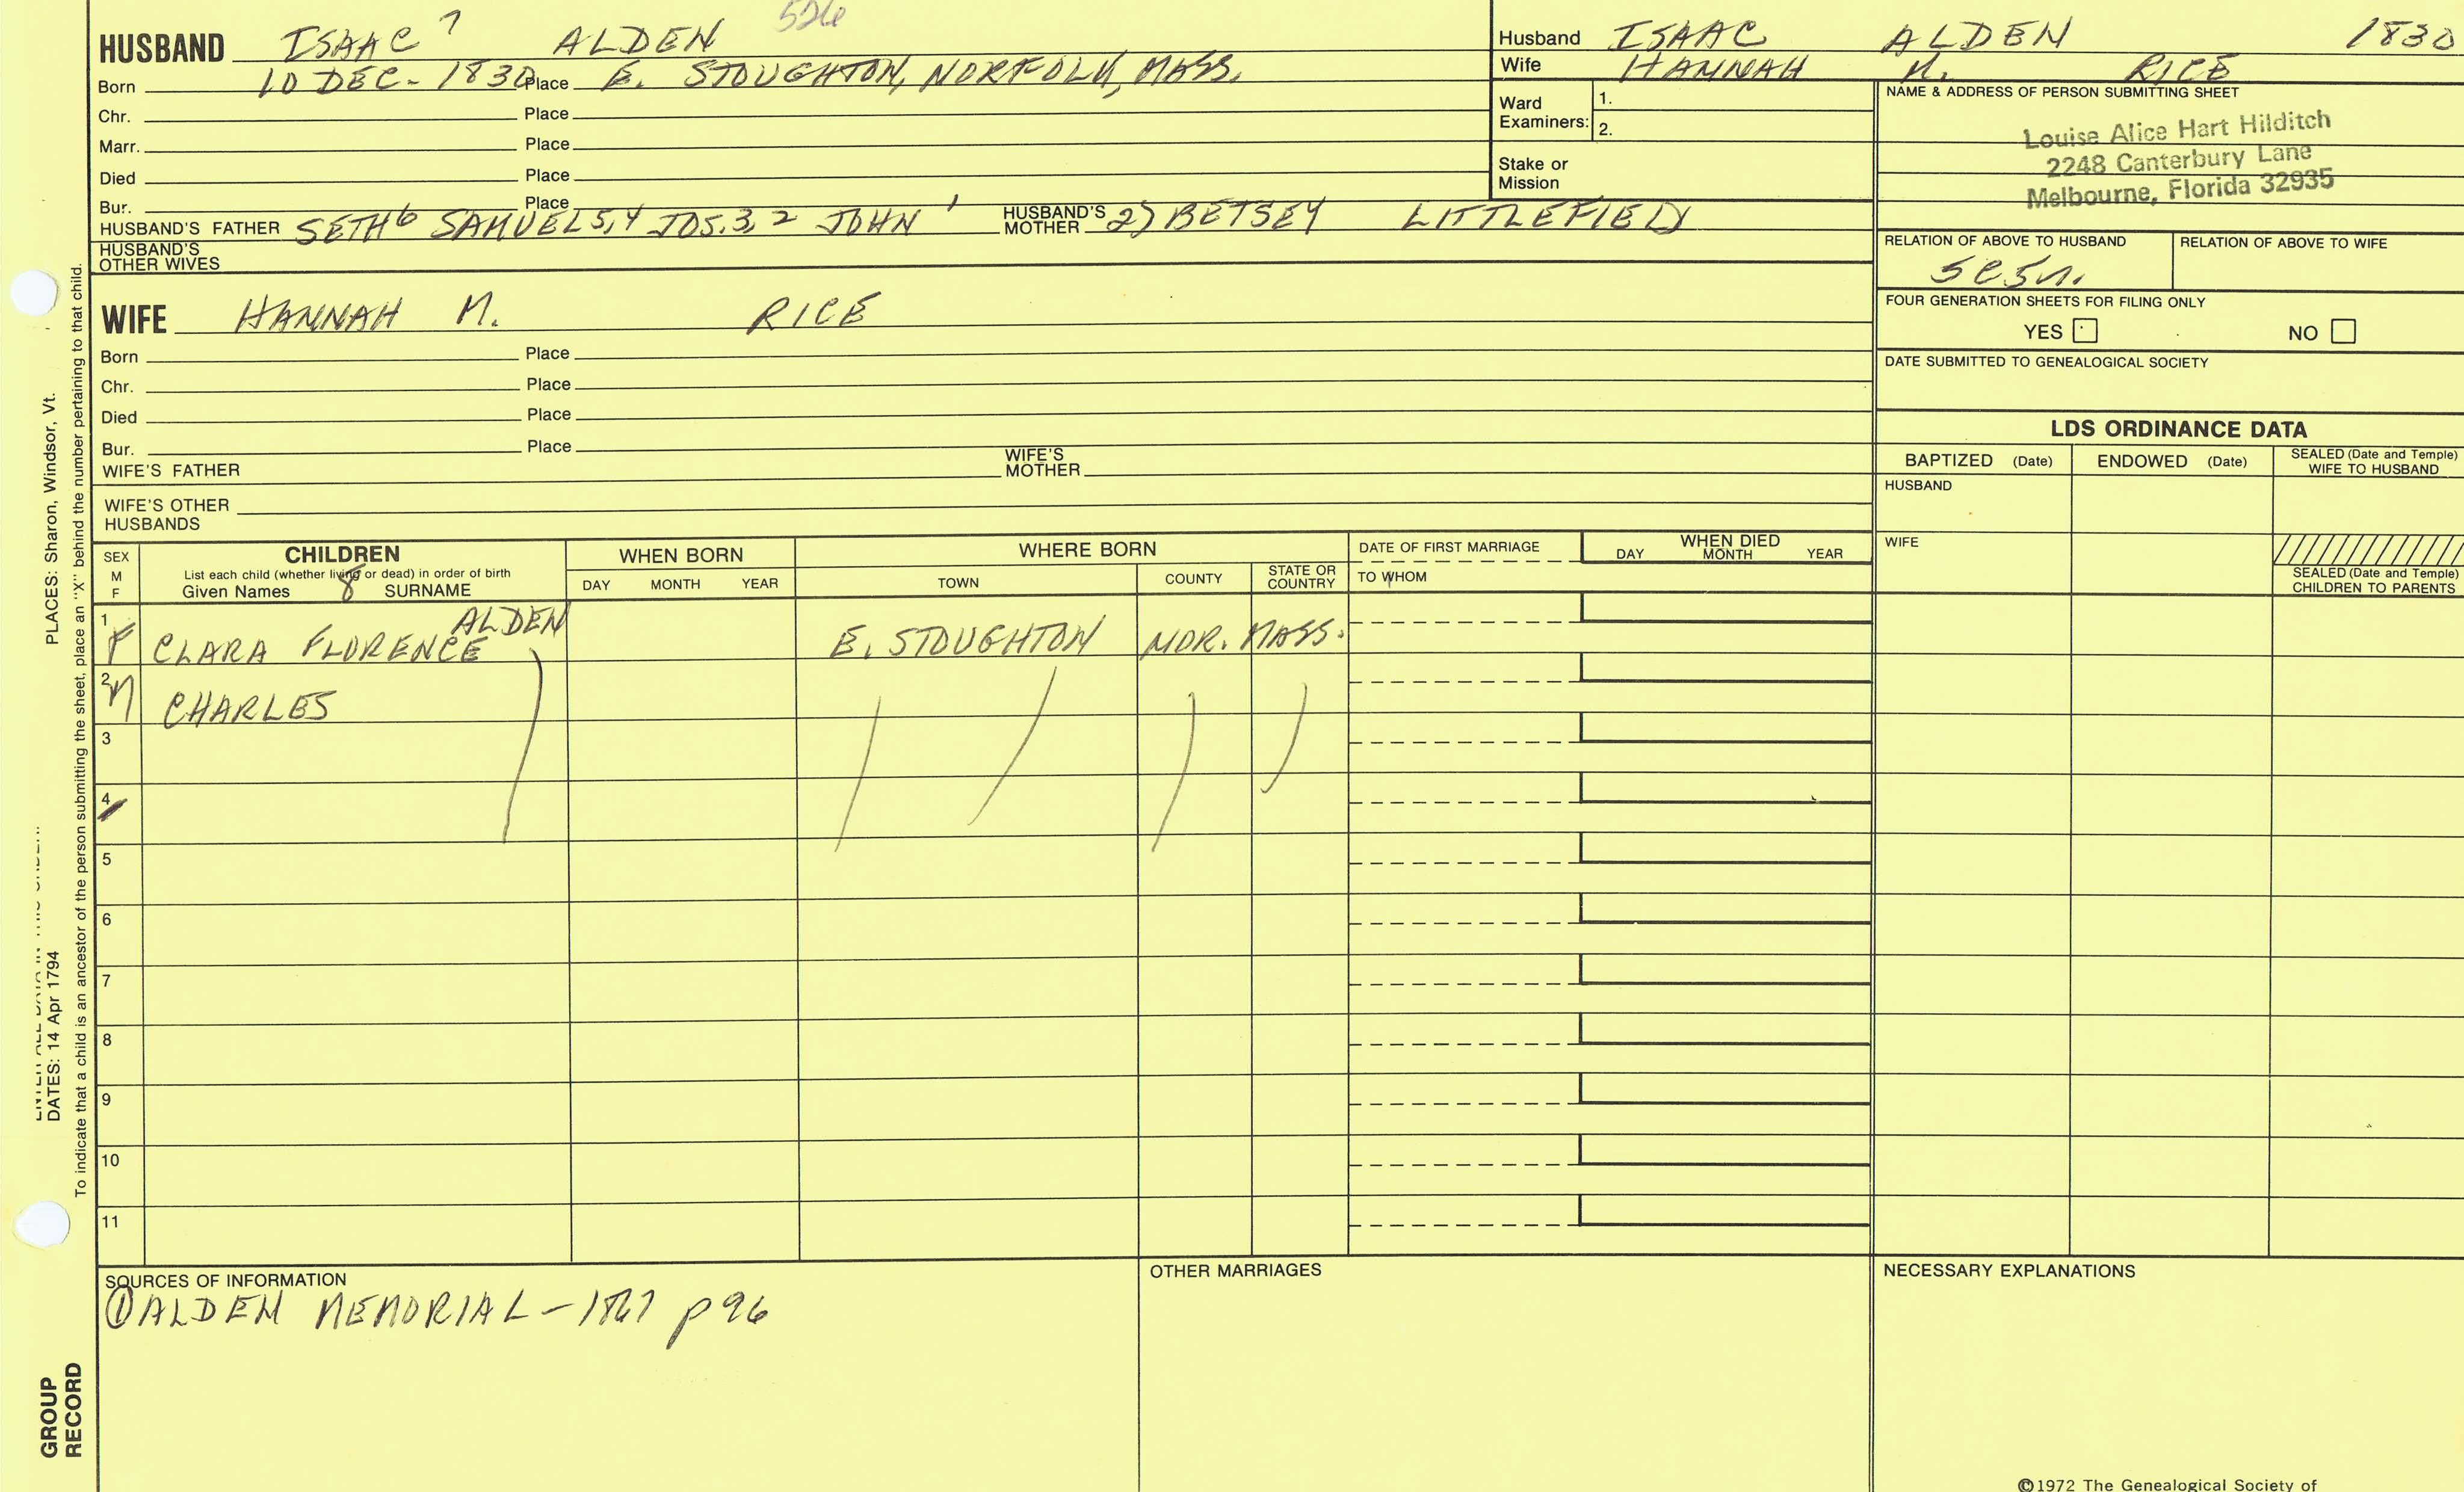 526
HUSBAND ISAAC 7 ALDEN
Born 10 DEC - 1830 Place E. STOUGHTON, NORFOLK, MASS.
Chr. Place
Marr. Place
Died Place
Bur. Place
HUSBAND'S FATHER SETH 6 SAMUEL 5,4 JOS. 3,2 JOHN 1 HUSBAND'S MOTHER 2) BETSEY LITTLEFIELD
HUSBAND'S OTHER WIVES
Husband ISAAC ALDEN 1830
Wife HANNAH M. RICE
Ward Examiners: 1.
2.
Stake or Mission
NAME & ADDRESS OF PERSON SUBMITTING SHEET
Louise Alice Hart Hilditch
2248 Canterbury Lane
Melbourne, Florida 32935
RELATION OF ABOVE TO HUSBAND RELATION OF ABOVE TO WIFE
FOUR GENERATION SHEETS FOR FILING ONLY
YES NO
DATE SUBMITTED TO GENEALOGICAL SOCIETY
WIFE HANNAH M. RICE
Born Place
Chr. Place
Died Place
Bur. Place
WIFE'S FATHER WIFE'S MOTHER
WIFE'S OTHER HUSBANDS
LDS ORDINANCE DATA
BAPTIZED (Date) ENDOWED (Date) SEALED (Date and Temple) WIFE TO HUSBAND
HUSBAND
WIFE
SEALED (Date and Temple) CHILDREN TO PARENTS
SEX M F
CHILDREN
List each child (whether living or dead) in order of birth
Given Names 8 SURNAME
WHEN BORN
DAY MONTH YEAR
WHERE BORN
TOWN COUNTY STATE OR COUNTRY
DATE OF FIRST MARRIAGE
TO WHOM
WHEN DIED
DAY MONTH YEAR
1 F CLARA FLORENCE ALDEN E. STOUGHTON NOR. MASS.
2 M CHARLES
3
4
5
6
7
8
9
10
11
SOURCES OF INFORMATION
① ALDEN MEMORIAL - 1867 p 96
OTHER MARRIAGES
NECESSARY EXPLANATIONS
©1972 The Genealogical Society of
PLACES: Sharon, Windsor, Vt.
DATES: 14 Apr 1794
To indicate that a child is an ancestor of the person submitting the sheet, place an "X" behind the number pertaining to that child.
GROUP RECORD